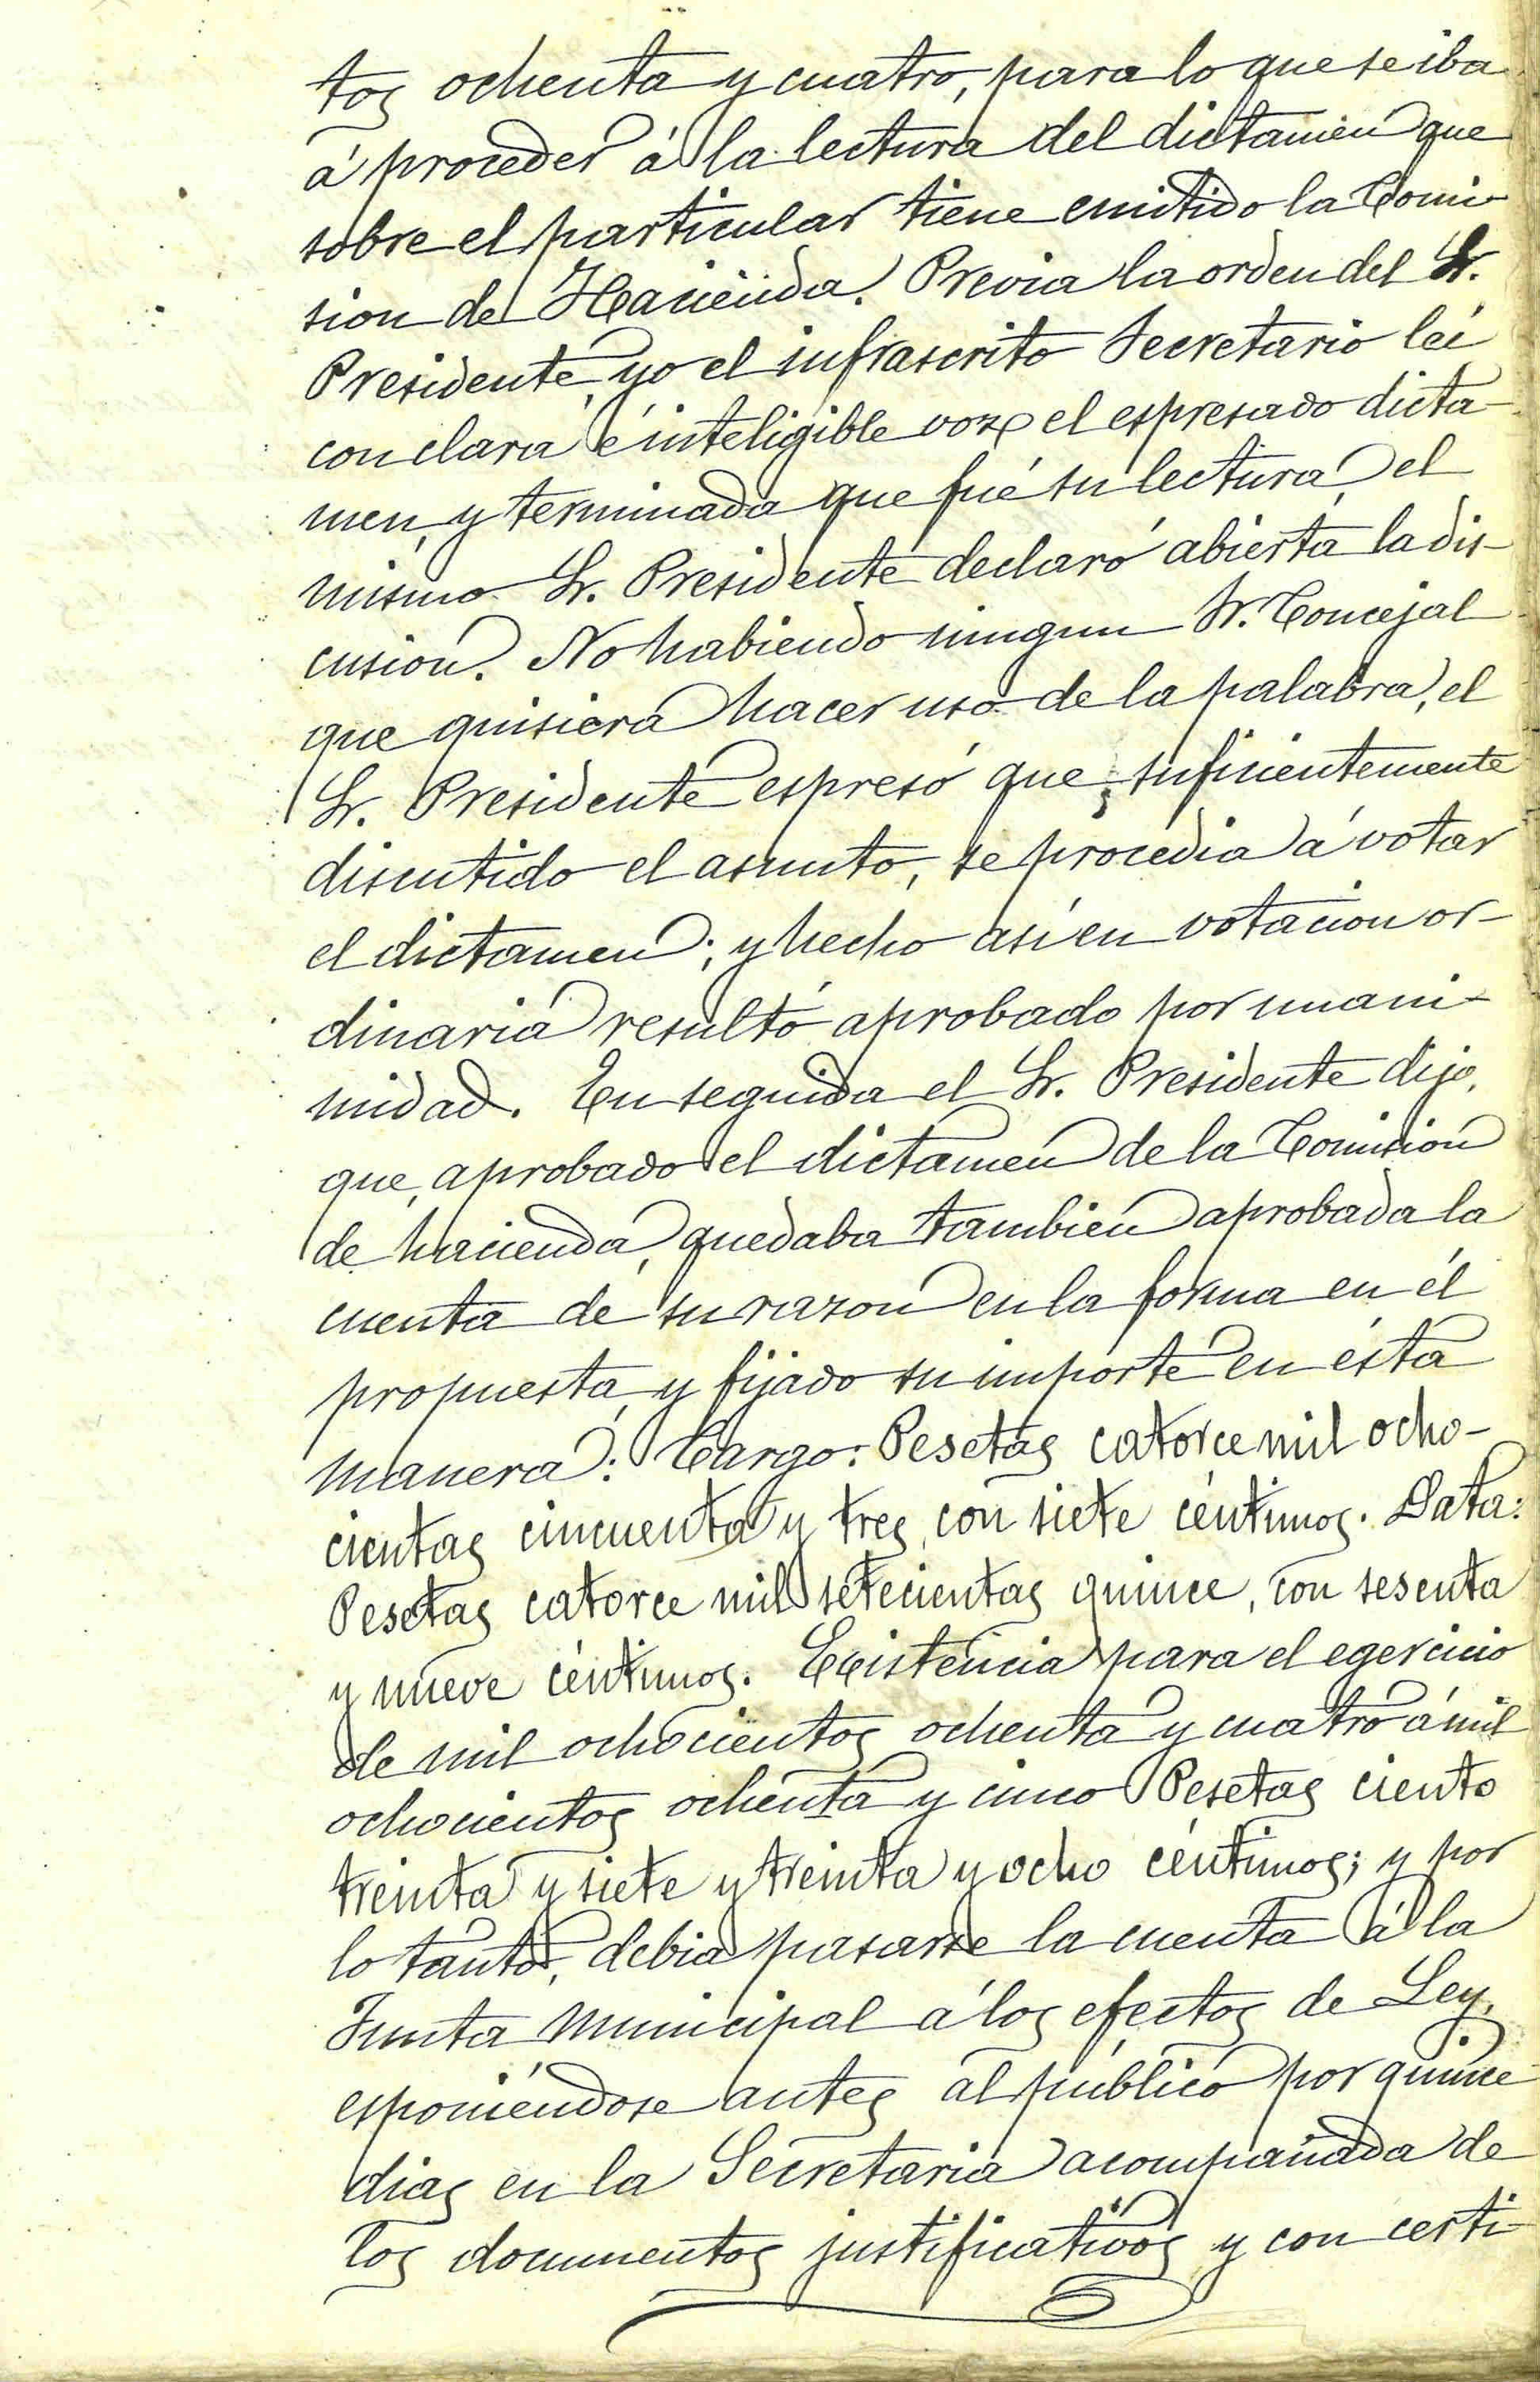 tos ochenta y cuatro, para lo que se iba
á proceder á la lectura del dictamen que
sobre el particular tiene emitido la Comi-
sion de Hacienda. Previa la orden del Sr.
Presidente, yo el infrascrito Secretario leí
con clara é inteligible voz el espresado dicta-
men, y terminada que fué su lectura, el
mismo Sr. Presidente declaró abierta la dis-
cusion. No habiendo ningun Sr. Concejal
que quisiera hacer uso de la palabra, el
Sr. Presidente espresó que, suficientemente
discutido el asunto, se procedia á votar
el dictamen; y hecho así en votacion or-
dinaria resultó aprobado por unani-
midad. En seguida el Sr. Presidente dijo,
que, aprobado el dictamen de la Comision
de hacienda, quedaba tambien aprobada la
cuenta de su razon en la forma en él
propuesta, y fijado su importe en ésta
manera: Cargo: Pesetas catorce mil ocho-
cientas cincuenta y tres, con siete céntimos. Data:
Pesetas catorce mil setecientas quince, con sesenta
y nueve céntimos. Existencia para el egercicio
de mil ochocientos ochenta y cuatro á mil
ochocientos ochenta y cinco Pesetas ciento
treinta y siete y treinta y ocho céntimos; y por
lo tanto, debia pasarse la cuenta á la
Junta Municipal á los efectos de Ley,
esponiéndose antes al público por quince
dias en la Secretaria acompañada de
los documentos justificativos y con certi-